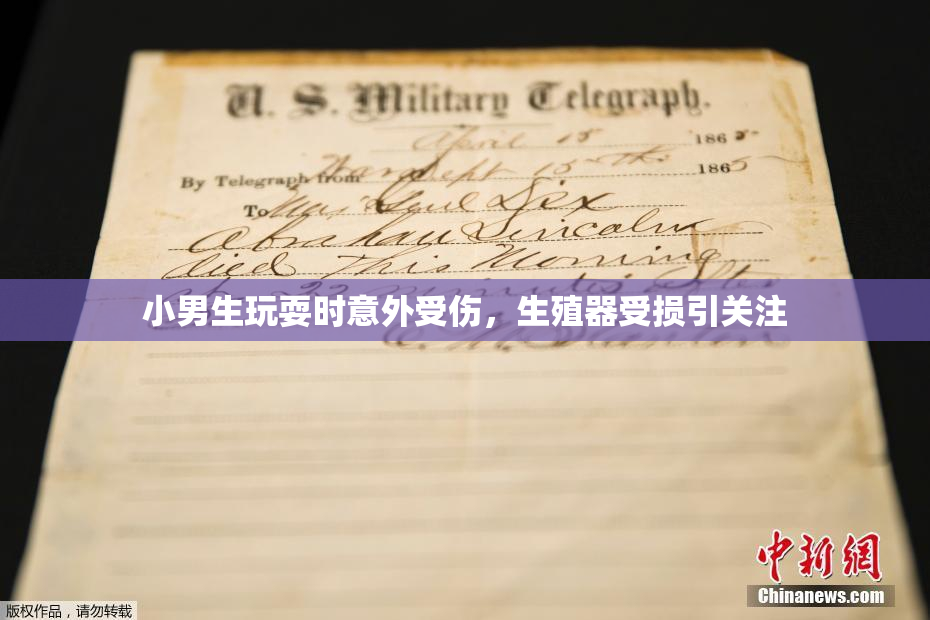 U. S. Military Telegraph.
April 15 1865
By Telegraph from War Dept 15th 1865
To Maj Genl Dix
Abraham Lincoln
died This Morning
at 22 minutes after
小男生玩耍时意外受伤，生殖器受损引关注
E. M. Stanton
中新网
Chinanews.com
版权作品，请勿转载